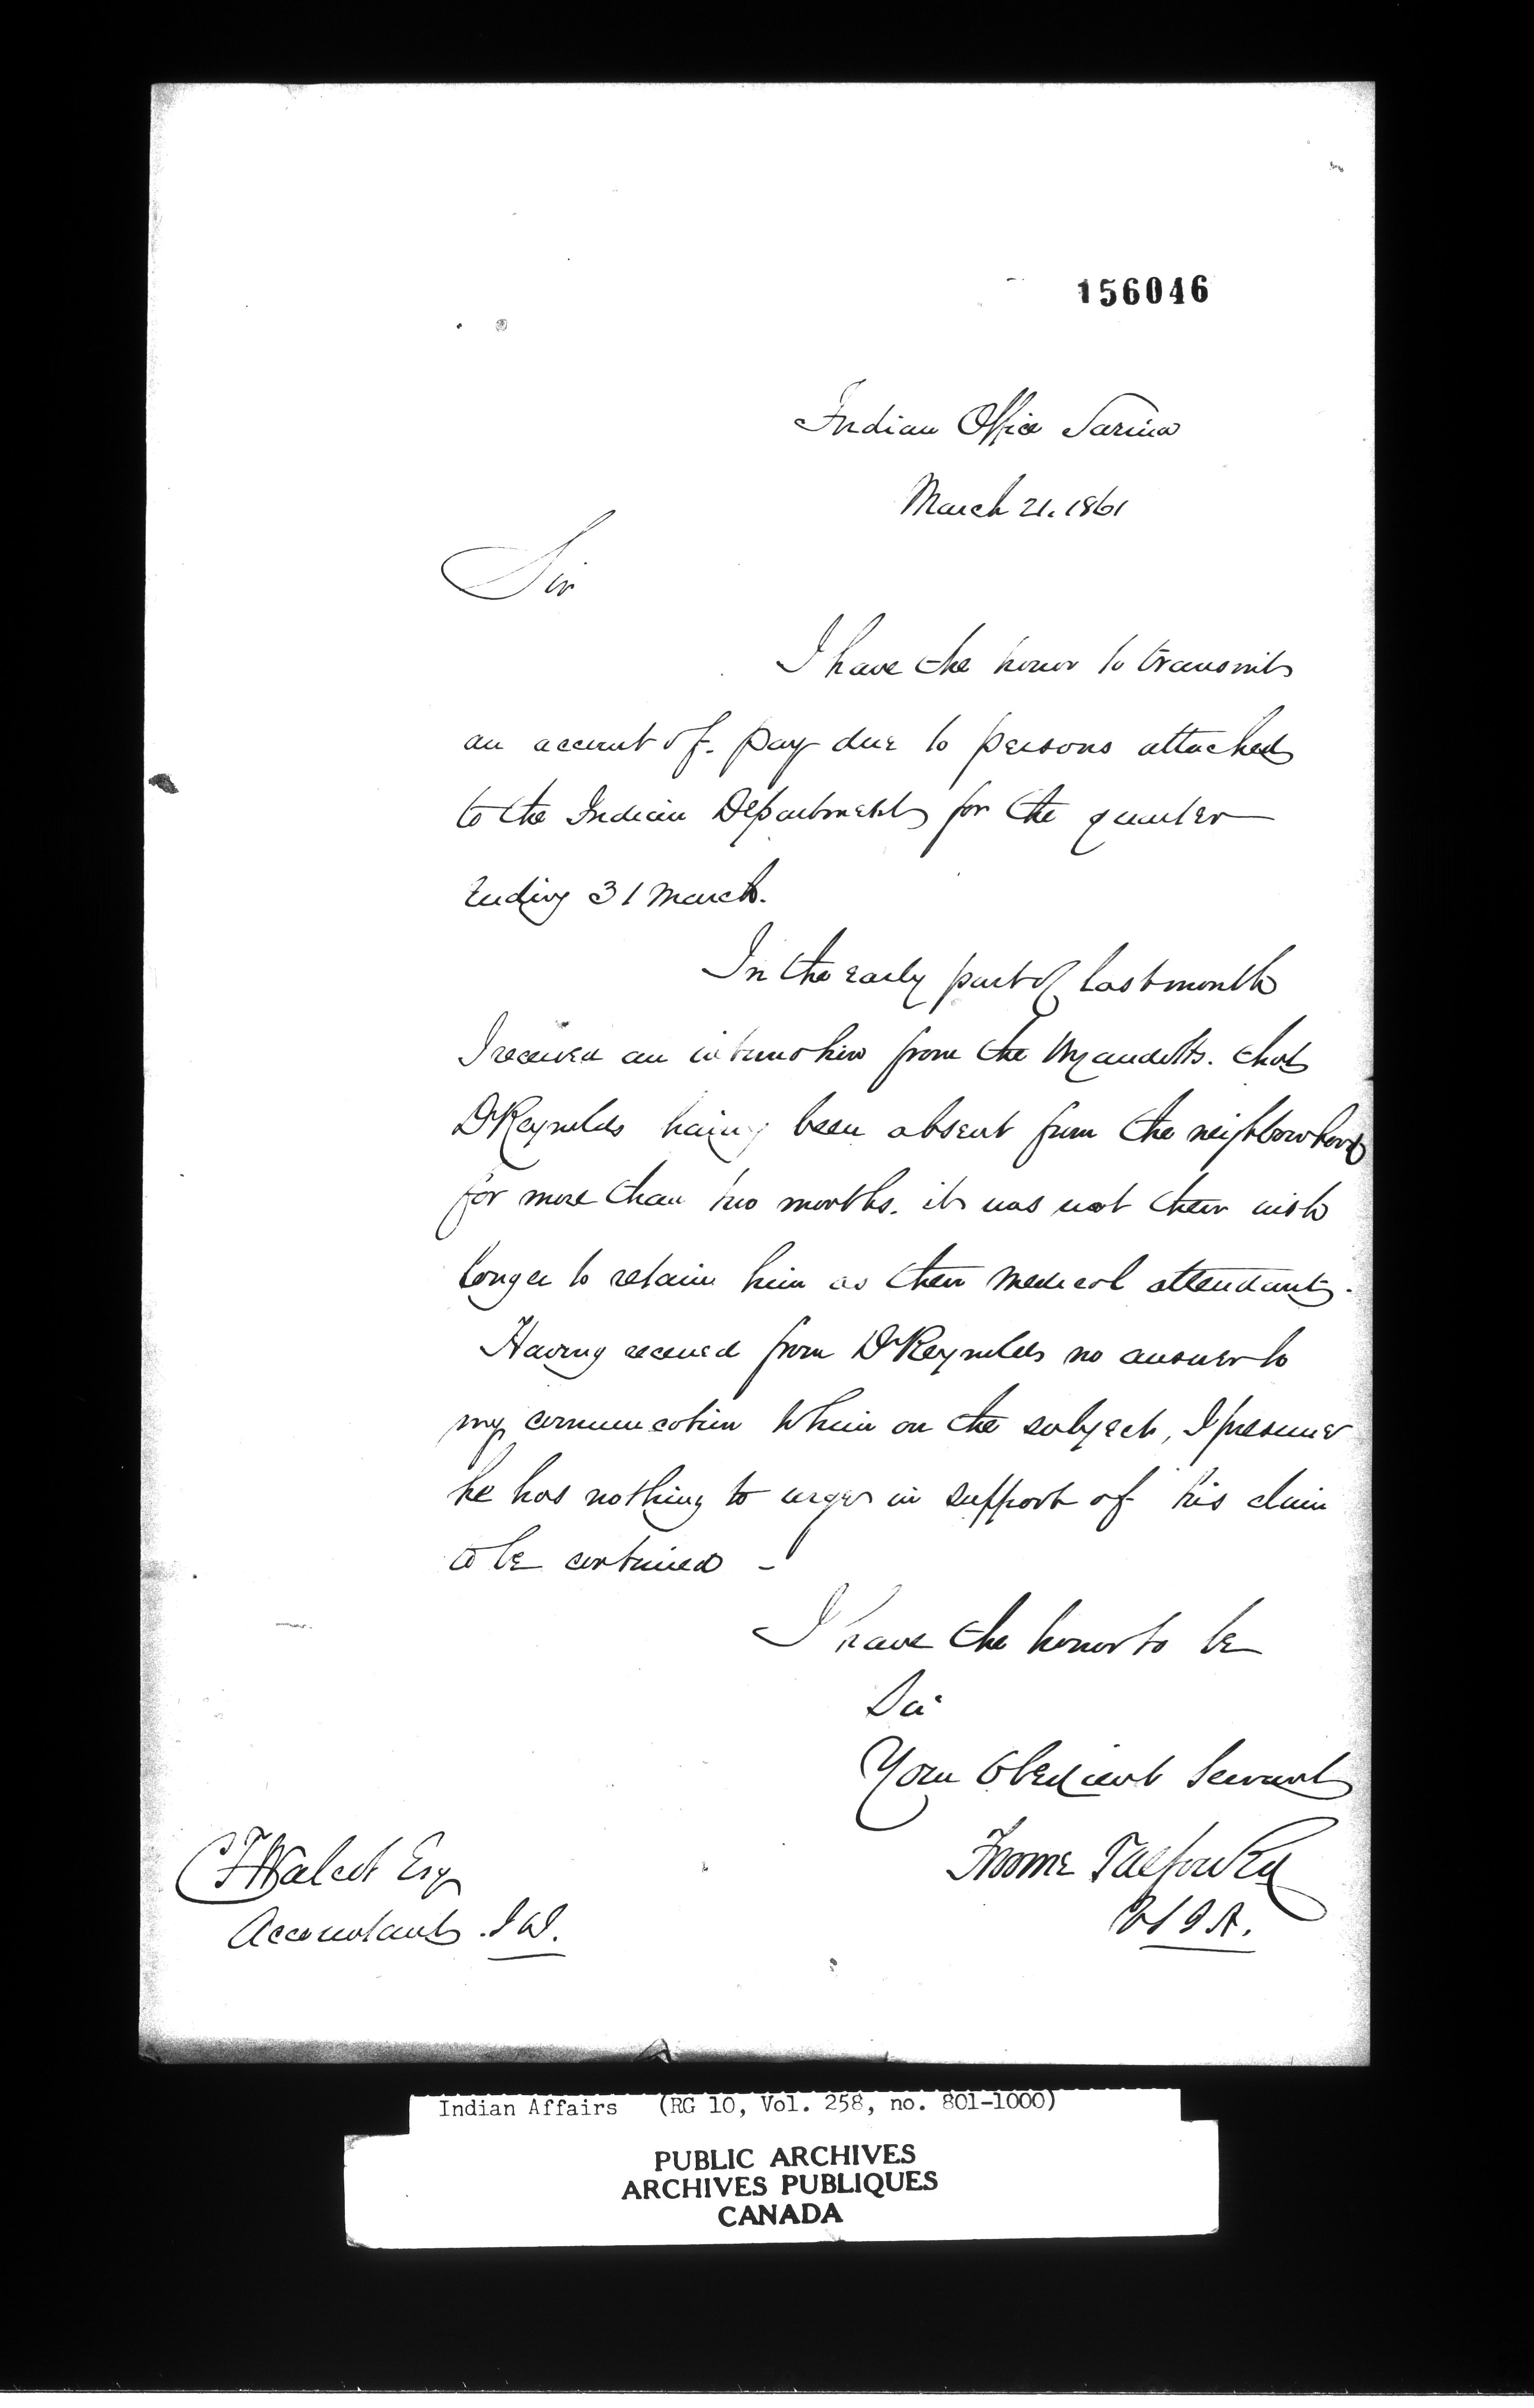 156046
Indian Office Sarnia
March 21. 1861
Sir
I have the honor to transmit
an account of pay due to persons attached
to the Indian Department for the quarter
Ending 31 March.
In the early part of last month
I received an intimation from the Wyandotts. that
Dr Reynolds having been absent from the neighbourhood
for more than two months. it was not their wish
longer to retain him as their medical attendant.
Having received from Dr Reynolds no answer to
my communication to him on the subject, I presume
he has nothing to urge in support of his claim
to be continued -
I have the honor to be
Sir
Your Obedient Servant
Froome Talfourd
V S I A.
C T Walcot Esq
Accountant. I D.
Indian Affairs (RG 10, Vol. 258, no. 801-1000)
PUBLIC ARCHIVES
ARCHIVES PUBLIQUES
CANADA